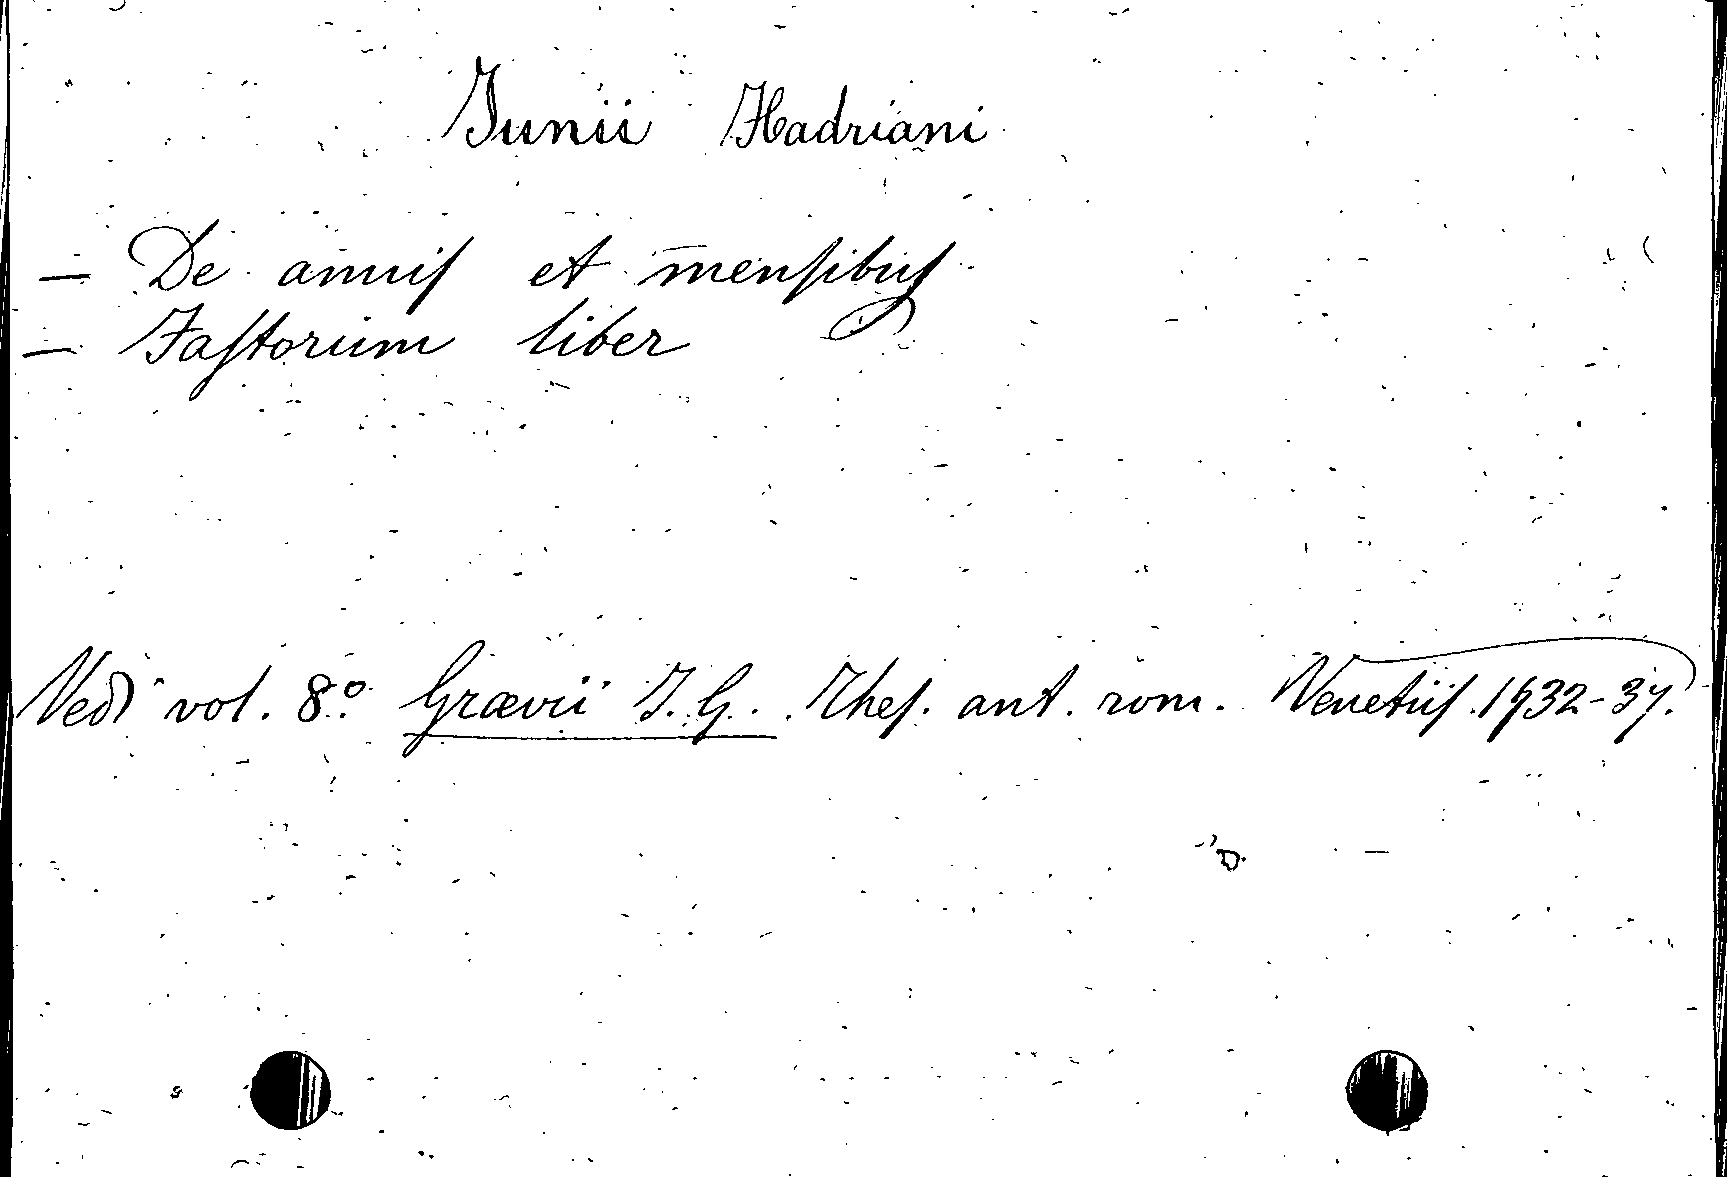 Junii Hadriani
— De annis et mensibus
— Fastorum liber
Vedi vol. 8.° Grævii J. G. Thes. ant. rom. Venetiis. 1732-37.